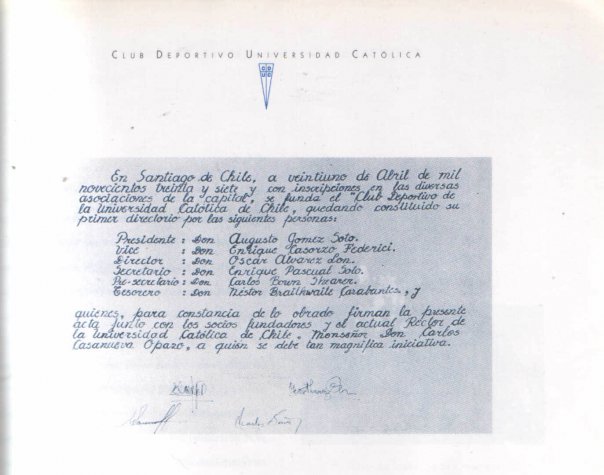 CLUB DEPORTIVO UNIVERSIDAD CATÓLICA
CD
UC
En Santiago de Chile, a veintiuno de Abril de mil
novecientos treinta y siete y con inscripciones en las diversas
asociaciones de la "capital", se funda el "Club Deportivo de
la Universidad Católica de Chile, quedando constituido su
primer directorio por las siguientes personas:
Presidente : Don Augusto Gomez Soto.
Vice : Don Enrique Casorzo Federici.
Director : Don Oscar Alvarez Lon.
Secretario : Don Enrique Pascual Soto.
Pro-secretario : Don Carlos Bown Shearer.
Tesorero : Don Néstor Braithwaite Carabantes, y
quienes, para constancia de lo obrado firman la presente
acta junto con los socios fundadores y el actual Rector de
la Universidad Católica de Chile, Monseñor Don Carlos
Casanueva Opazo, a quién se debe tan magnífica iniciativa.